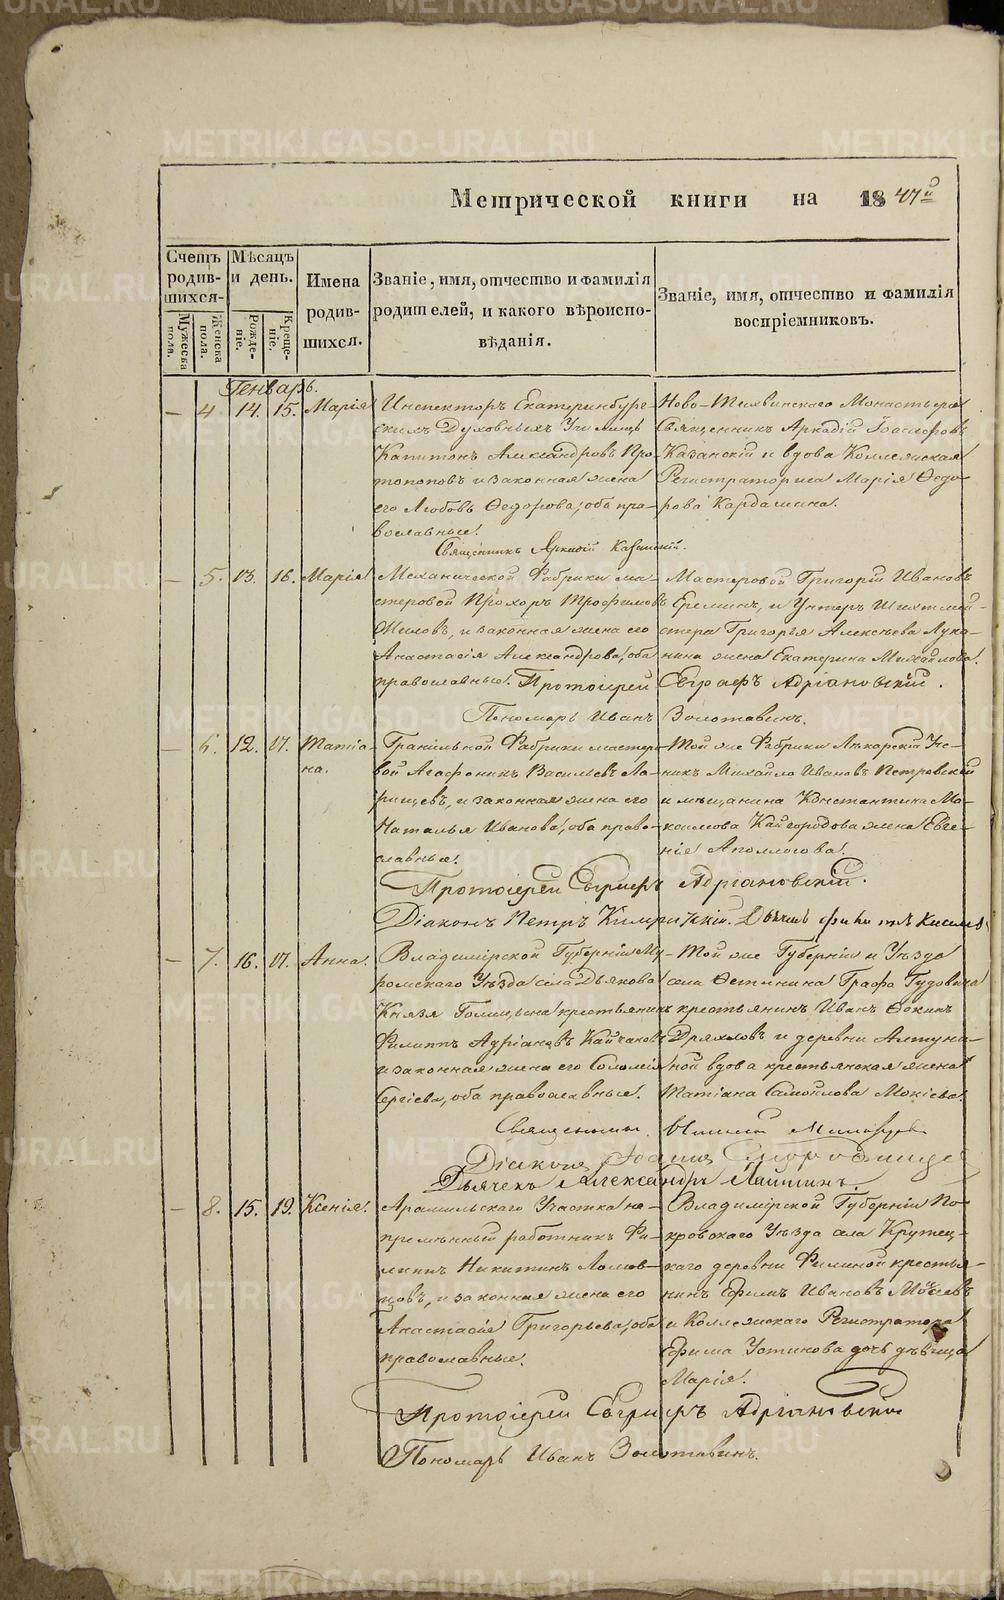 METRIKI.GASO-URAL.RU
Метрической книги на 1847й
Счетъ родив-шихся.
Мужеска пола.
Женска пола.
Мѣсяцъ и день.
Рожде-ніе.
Креще-ніе.
Имена родив-шихся.
Званіе, имя, отчество и фамилія родителей, и какого вѣроиспо-вѣданія.
Званіе, имя, отчество и фамилія воспріемниковъ.
Генварь.
— 4. 14. 15. Марія
Инспекторъ Екатеринбург-
скихъ Духовныхъ Училищъ
Капитонъ Александровъ Про-
топоповъ и законная жена
его Любовь Ѳедорова, оба пра-
вославные.
Ново-Тихвинскаго Монастыря
Священникъ Аркадій
Казанскій и вдова Коллежская
Регистраторша Марія Ѳедо-
рова Кардашина.
Священникъ Аркадій Казанскій.
— 5. 13. 16. Марія
Механической Фабрики ма-
стеровой Прохоръ Трофимовъ
Шиловъ, и законная жена его
Анастасія Александрова, оба
православные.
Мастеровой Григорій Ивановъ
Ереминъ, и Унтеръ Шихтмей-
стера Григорья Алексѣева Лука-
нина жена Екатерина Михайлова.
Протоіерей Евграфъ Адріановскій.
Пономарь Иванъ Золотавинъ.
— 6. 12. 17. Татіа-
на.
Гранильной Фабрики мастеро-
вой Агафоникъ Васильевъ Ла-
рищевъ, и законная жена его
Наталья Иванова, оба право-
славные.
Той же Фабрики Лѣкарскій Уче-
никъ Михайло Ивановъ Петровскій
и мѣщанина Константина Ма-
ксимова Кайгородова жена Евге-
нія Аполлосова.
Протоіерей Евграфъ Адріановскій.
Діаконъ Петръ
— 7. 16. 17. Анна.
Владимірской Губерніи Му-
ромскаго Уѣзда села Дьякова
Князя Голицына крестьянинъ
Филиппъ Адріановъ
и законная жена его Соломія
Сергіева, оба православные.
Той же Губерніи и Уѣзда
села Ѳетинина Графа Гудовича
крестьянинъ Иванъ Ѳокинъ
Дряхловъ и деревни Алтуни-
ной вдова крестьянская жена
Татіана Самойлова Мокіева.
Священникъ
Діаконъ Іоаннъ
Дьячекъ Александръ
— 8. 15. 19. Ксенія.
Арамильскаго Участка не-
премѣнный работникъ Фи-
липпъ Никитинъ Ломов-
цовъ, и законная жена его
Анастасія Григорьева, оба
православные.
Владимірской Губерніи По-
кровскаго Уѣзда села Крутец-
каго деревни Филиной крестья-
нинъ Ефимъ Ивановъ Мосѣевъ
и Коллежскаго Регистратора
Ефима Устинова дочь дѣвица
Марія.
Протоіерей Евграфъ Адріановскій
Пономарь Иванъ Золотавинъ.